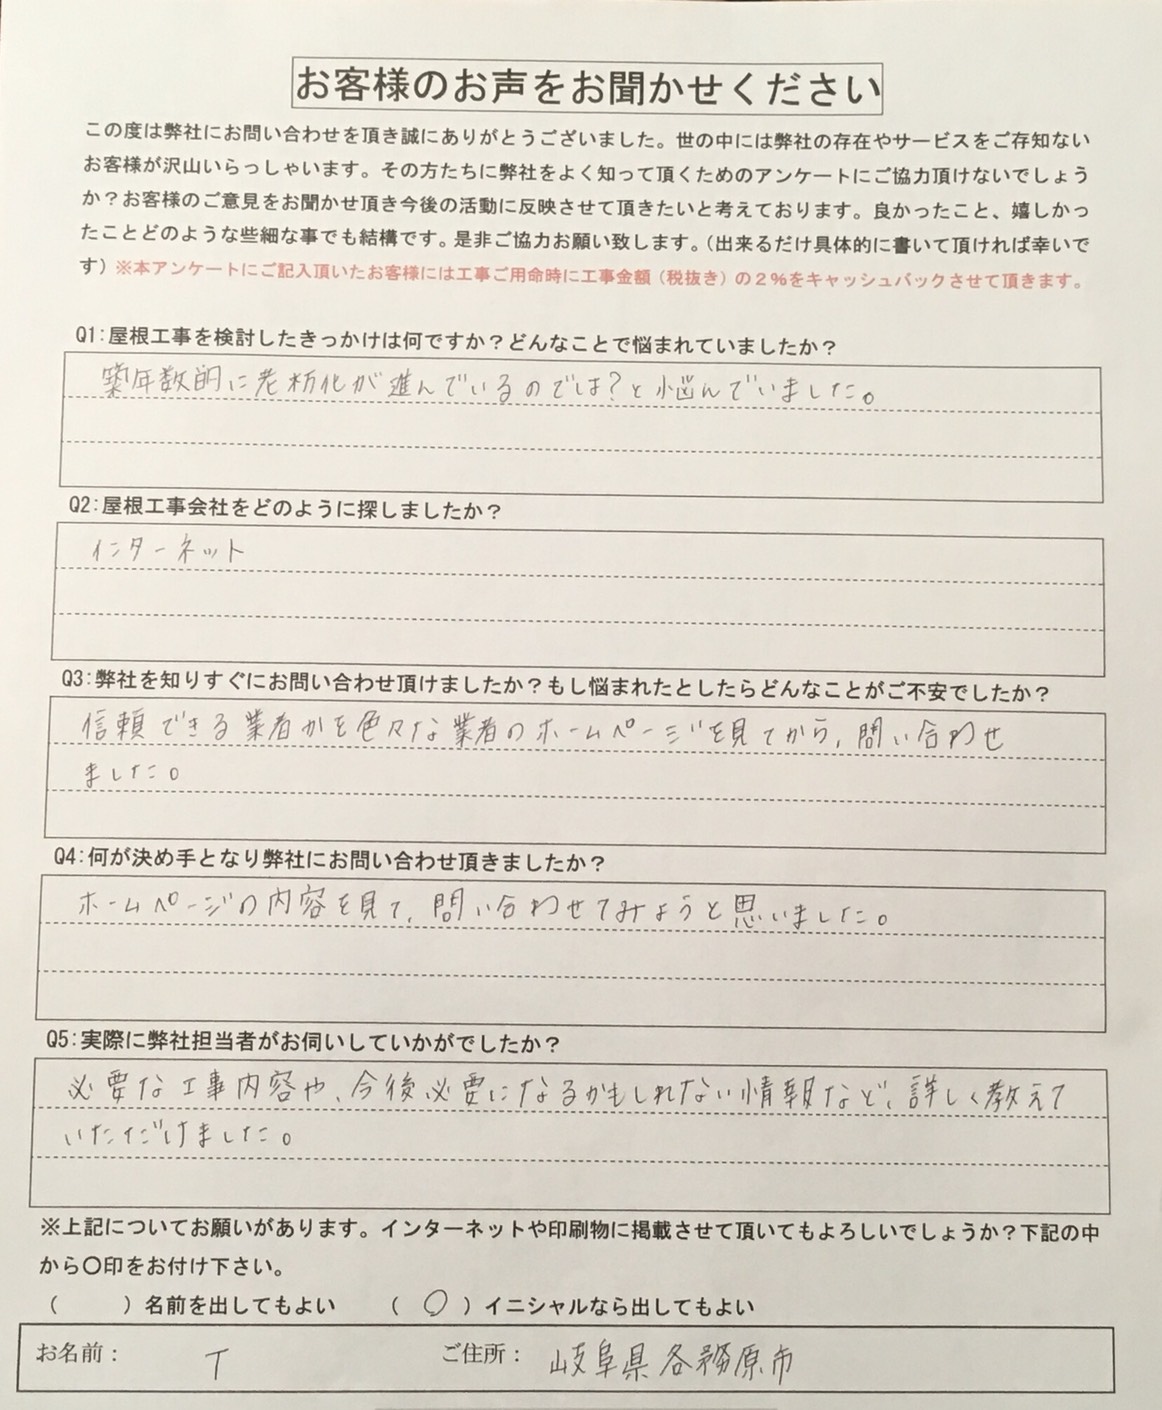 お客様のお声をお聞かせください
この度は弊社にお問い合わせを頂き誠にありがとうございました。世の中には弊社の存在やサービスをご存知ない
お客様が沢山いらっしゃいます。その方たちに弊社をよく知って頂くためのアンケートにご協力頂けないでしょう
か？お客様のご意見をお聞かせ頂き今後の活動に反映させて頂きたいと考えております。良かったこと、嬉しかっ
たことどのような些細な事でも結構です。是非ご協力お願い致します。（出来るだけ具体的に書いて頂ければ幸いで
す）※本アンケートにご記入頂いたお客様には工事ご用命時に工事金額（税抜き）の２％をキャッシュバックさせて頂きます。
Q1:屋根工事を検討したきっかけは何ですか？どんなことで悩まれていましたか？
築年数的に老朽化が進んでいるのでは？と悩んでいました。
Q2:屋根工事会社をどのように探しましたか？
インターネット
Q3:弊社を知りすぐにお問い合わせ頂けましたか？もし悩まれたとしたらどんなことがご不安でしたか？
信頼できる業者かを色々な業者のホームページを見てから、問い合わせ
ました。
Q4:何が決め手となり弊社にお問い合わせ頂きましたか？
ホームページの内容を見て、問い合わせてみようと思いました。
Q5:実際に弊社担当者がお伺いしていかがでしたか？
必要な工事内容や、今後必要になるかもしれない情報など、詳しく教えて
いただけました。
※上記についてお願いがあります。インターネットや印刷物に掲載させて頂いてもよろしいでしょうか？下記の中
から〇印をお付け下さい。
（　　）名前を出してもよい　（〇）イニシャルなら出してもよい
お名前： T ご住所： 岐阜県各務原市